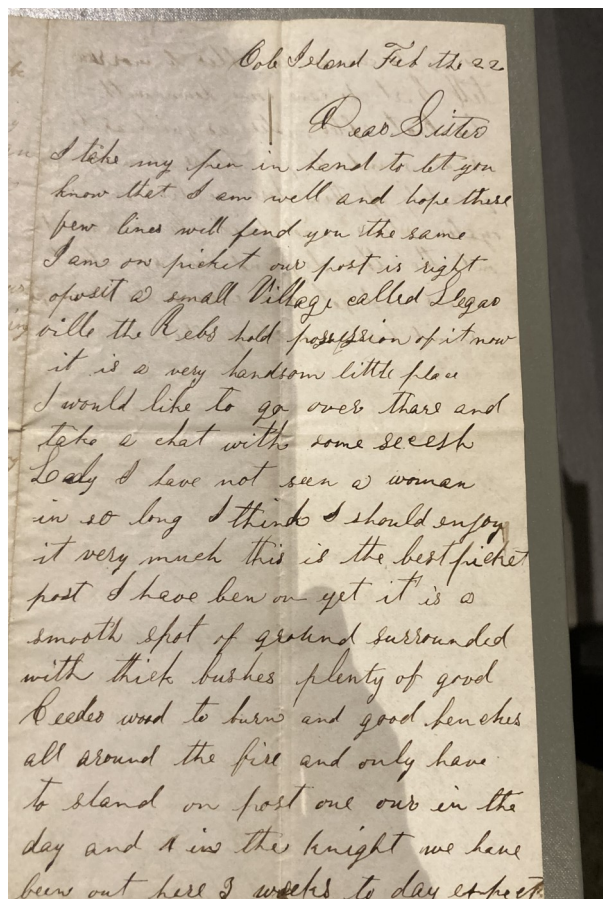 Cole Island Feb the 22
Dear Sister
I take my pen in hand to let you
know that I am well and hope these
few lines will find you the same
I am on picket our post is right
oposit a small Village called Legar
ville the Rebs hold possession of it now
it is a very handsom little place
I would like to go over thare and
take a chat with some secesh
Lady I have not seen a woman
in so long I think I should enjoy
it very much this is the best picket
post I have ben on yet it is a
smooth spot of ground surrounded
with thick bushes plenty of good
Ceeder wood to burn and good benches
all around the fire and only have
to stand on post one our in the
day and 1 in the knight we have
been out here 3 weeks to day expect